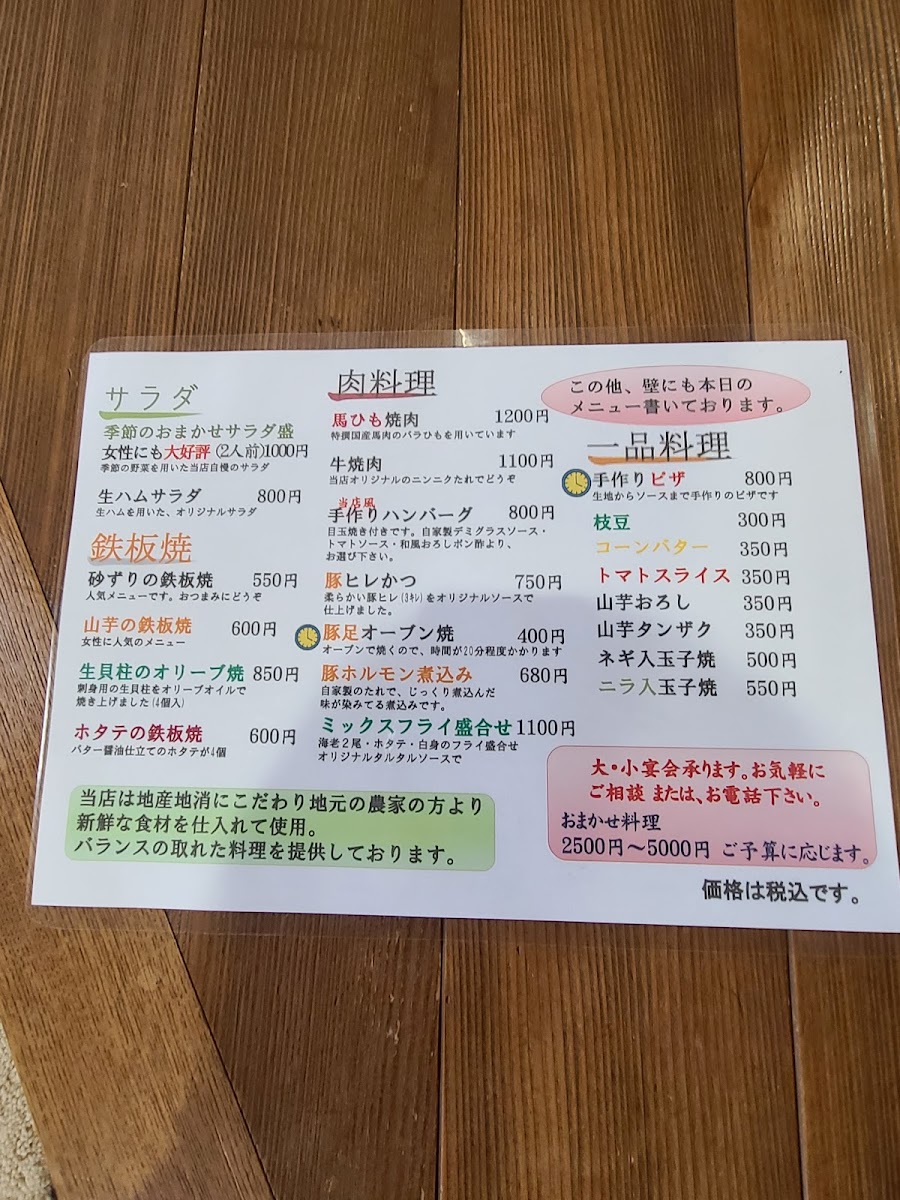 サラダ
季節のおまかせサラダ盛
女性にも大好評(2人前)1000円
季節の野菜を用いた当店自慢のサラダ
生ハムサラダ 800円
生ハムを用いた、オリジナルサラダ
鉄板焼
砂ずりの鉄板焼 550円
人気メニューです。おつまみにどうぞ
山芋の鉄板焼 600円
女性に人気のメニュー
生貝柱のオリーブ焼 850円
刺身用の生貝柱をオリーブオイルで
焼き上げました(4個入)
ホタテの鉄板焼 600円
バター醤油仕立てのホタテが4個
肉料理
馬ひも焼肉 1200円
特撰国産馬肉のバラひもを用いています
牛焼肉 1100円
当店オリジナルのニンニクたれでどうぞ
当店風
手作りハンバーグ 800円
目玉焼き付きです。自家製デミグラスソース・
トマトソース・和風おろしポン酢より、
お選び下さい。
豚ヒレかつ 750円
柔らかい豚ヒレ(3キレ)をオリジナルソースで
仕上げました。
豚足オーブン焼 400円
オーブンで焼くので、時間が20分程度かかります
豚ホルモン煮込み 680円
自家製のたれで、じっくり煮込んだ
味が染みてる煮込みです。
ミックスフライ盛合せ 1100円
海老2尾・ホタテ・白身のフライ盛合せ
オリジナルタルタルソースで
この他、壁にも本日の
メニュー書いております。
一品料理
手作りピザ 800円
生地からソースまで手作りのピザです
枝豆 300円
コーンバター 350円
トマトスライス 350円
山芋おろし 350円
山芋タンザク 350円
ネギ入玉子焼 500円
ニラ入玉子焼 550円
当店は地産地消にこだわり地元の農家の方より
新鮮な食材を仕入れて使用。
バランスの取れた料理を提供しております。
大・小宴会承ります。お気軽に
ご相談 または、お電話下さい。
おまかせ料理
2500円〜5000円 ご予算に応じます。
価格は税込です。